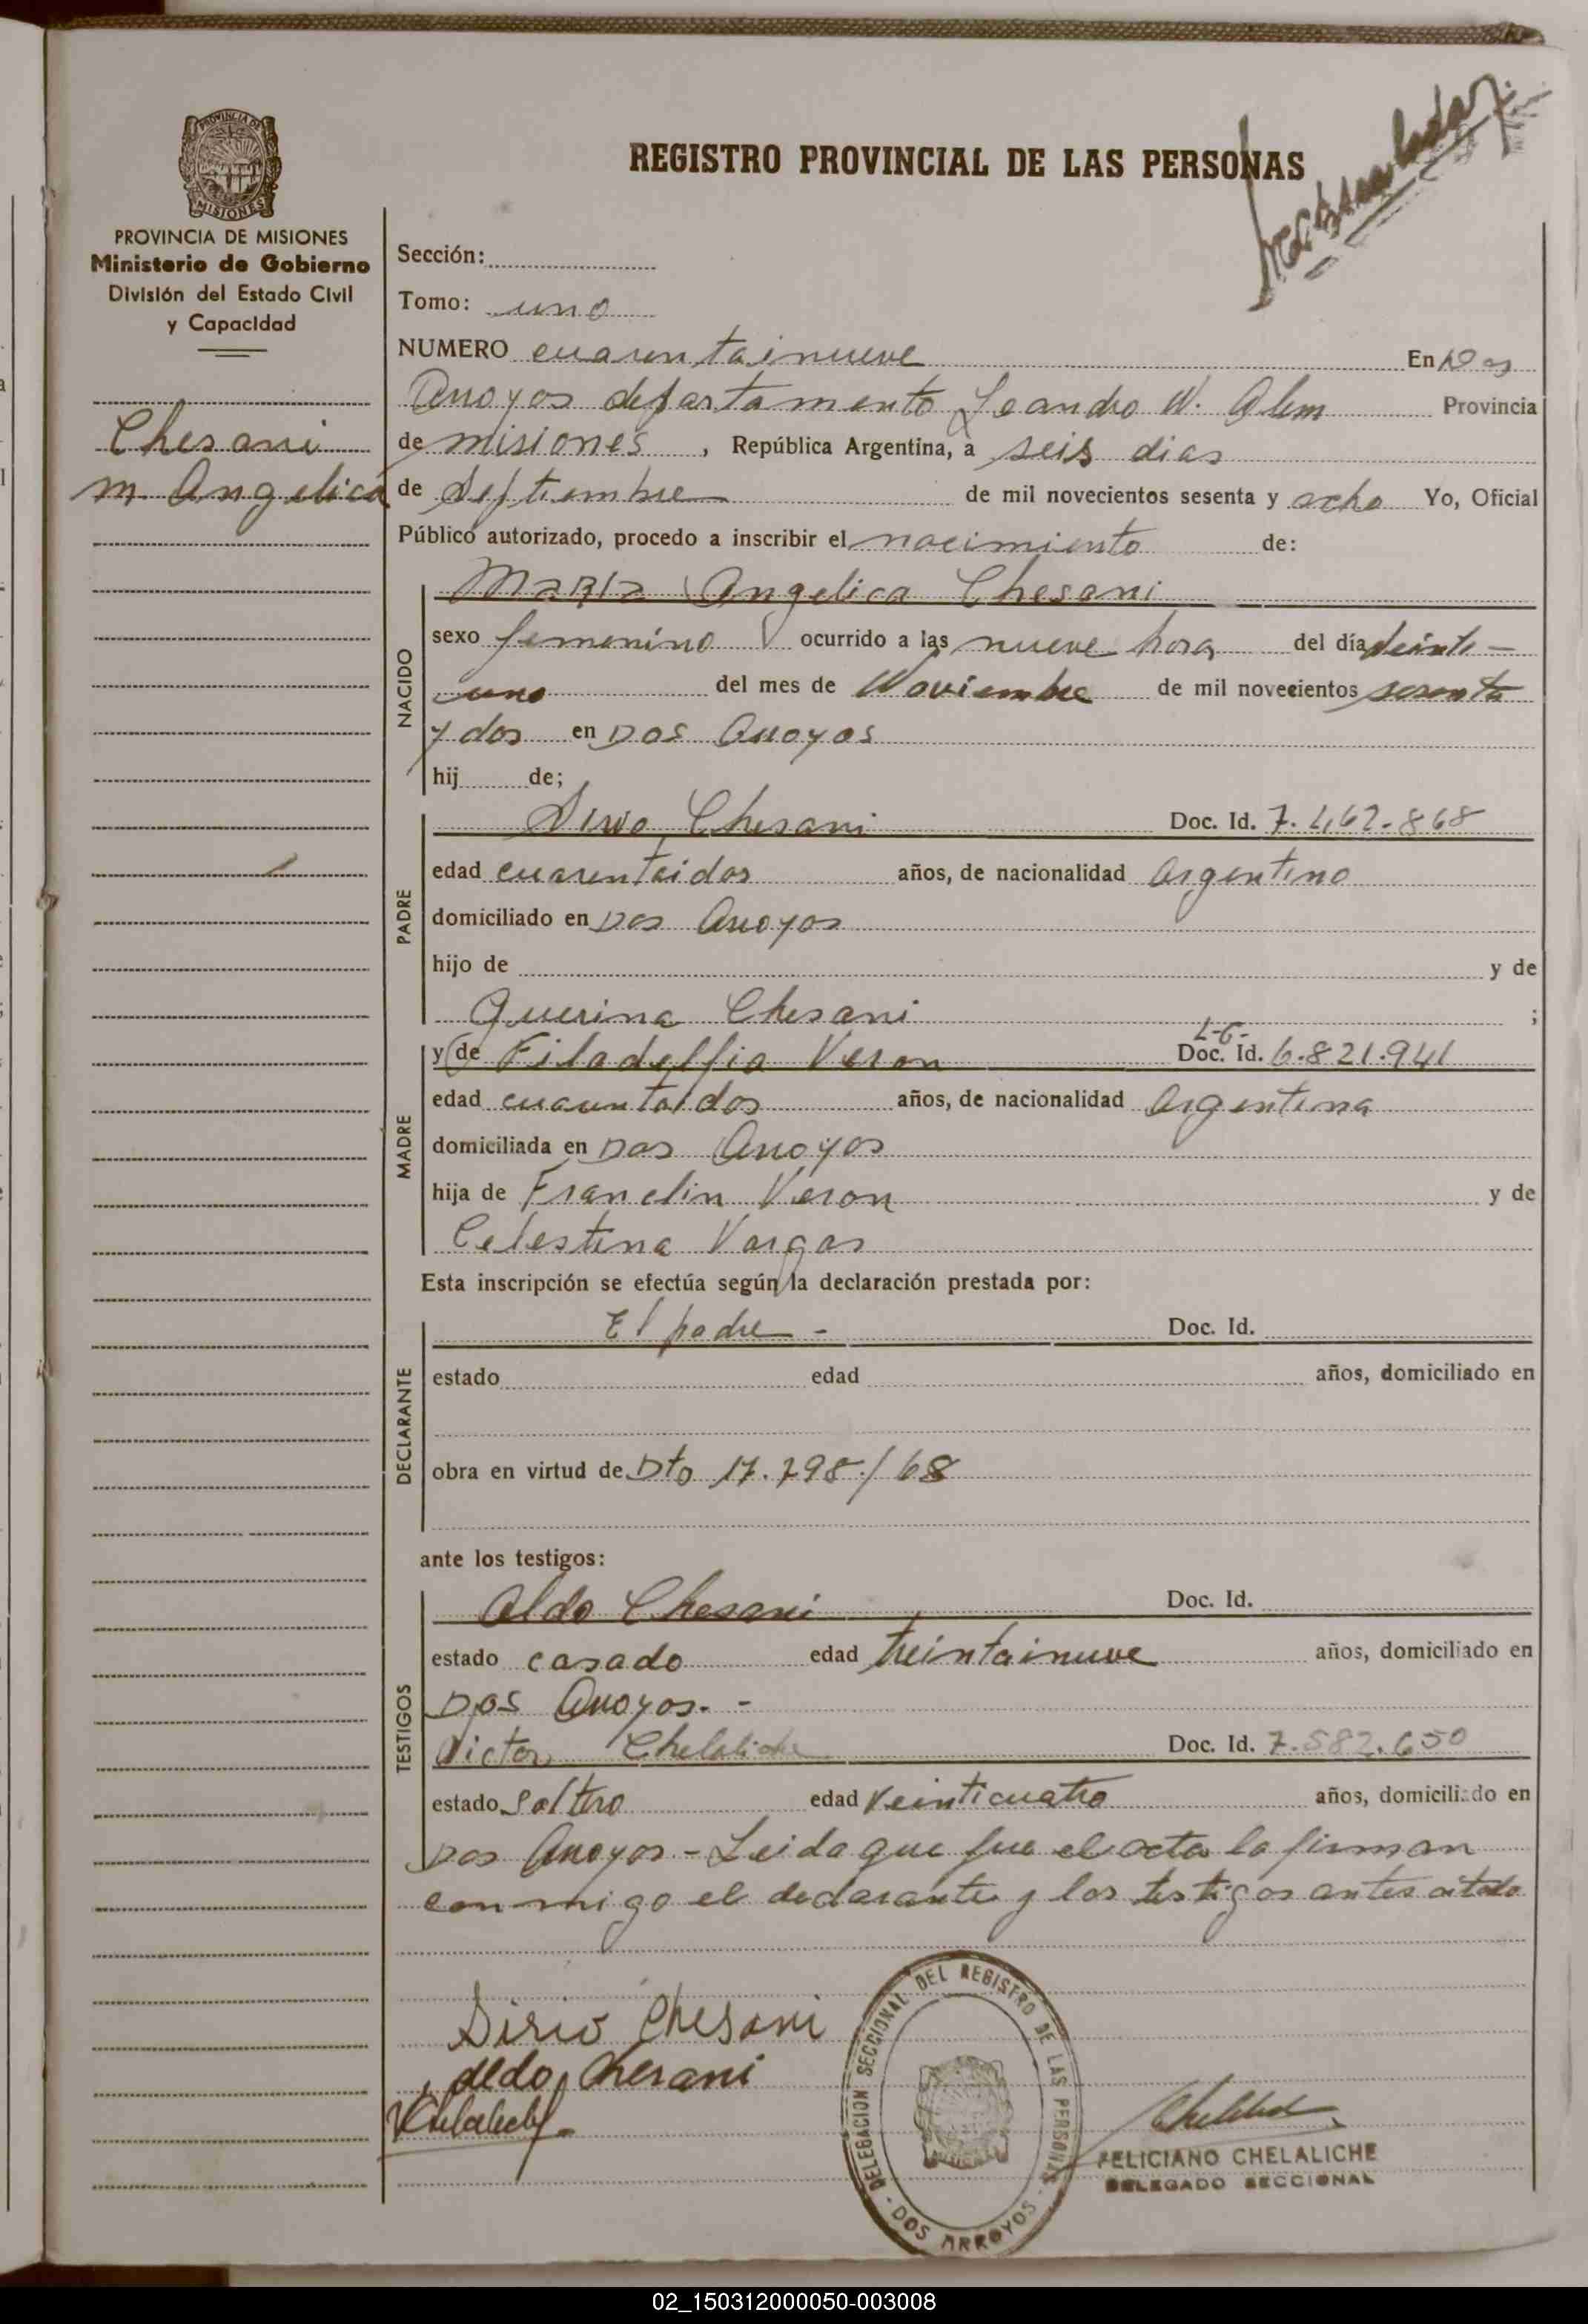 REGISTRO PROVINCIAL DE LAS PERSONAS
PROVINCIA DE MISIONES
PROVINCIA DE MISIONES
Ministerio de Gobierno
División del Estado Civil
y Capacidad
Chesani
m. Angelica
Sección:
Tomo: uno
NUMERO cuarentainueve En Dos
Arroyos departamento Leandro N. Alem Provincia
de misiones, República Argentina, a seis dias
de Septiembre de mil novecientos sesenta y ocho Yo, Oficial
Público autorizado, procedo a inscribir el nacimiento de:
NACIDO
Maria Angelica Chesani
sexo femenino ocurrido a las nueve hora del día veinte-
uno del mes de Noviembre de mil novecientos sesenta
y dos en Dos Arroyos
hij de;
PADRE
Sirio Chesani Doc. Id. 7.462.868
edad cuarentaidos años, de nacionalidad Argentino
domiciliado en Dos Arroyos
hijo de y de
Querina Chesani ;
MADRE
L-C-
y de Filadelfia Veron Doc. Id. 6.821.941
edad cuarentaidos años, de nacionalidad Argentina
domiciliada en Dos Arroyos
hija de Franclin Veron y de
Celestina Vargas
Esta inscripción se efectúa según la declaración prestada por:
DECLARANTE
El padre - Doc. Id.
estado edad años, domiciliado en
obra en virtud de Dto 17.798/68
ante los testigos:
TESTIGOS
Aldo Chesani Doc. Id.
estado casado edad treintainueve años, domiciliado en
Dos Arroyos.-
Victor Chelaliche Doc. Id. 7.582.650
estado Soltero edad Veinticuatro años, domiciliado en
Dos Arroyos - Leida que fue el acta la firman
conmigo el declarante y los testigos antes citado
Sirio Chesani
Aldo Chesani
VChelaliche
DELEGACION SECCIONAL DEL REGISTRO DE LAS PERSONAS - DOS ARROYOS -
FELICIANO CHELALICHE
DELEGADO SECCIONAL
02_150312000050-003008